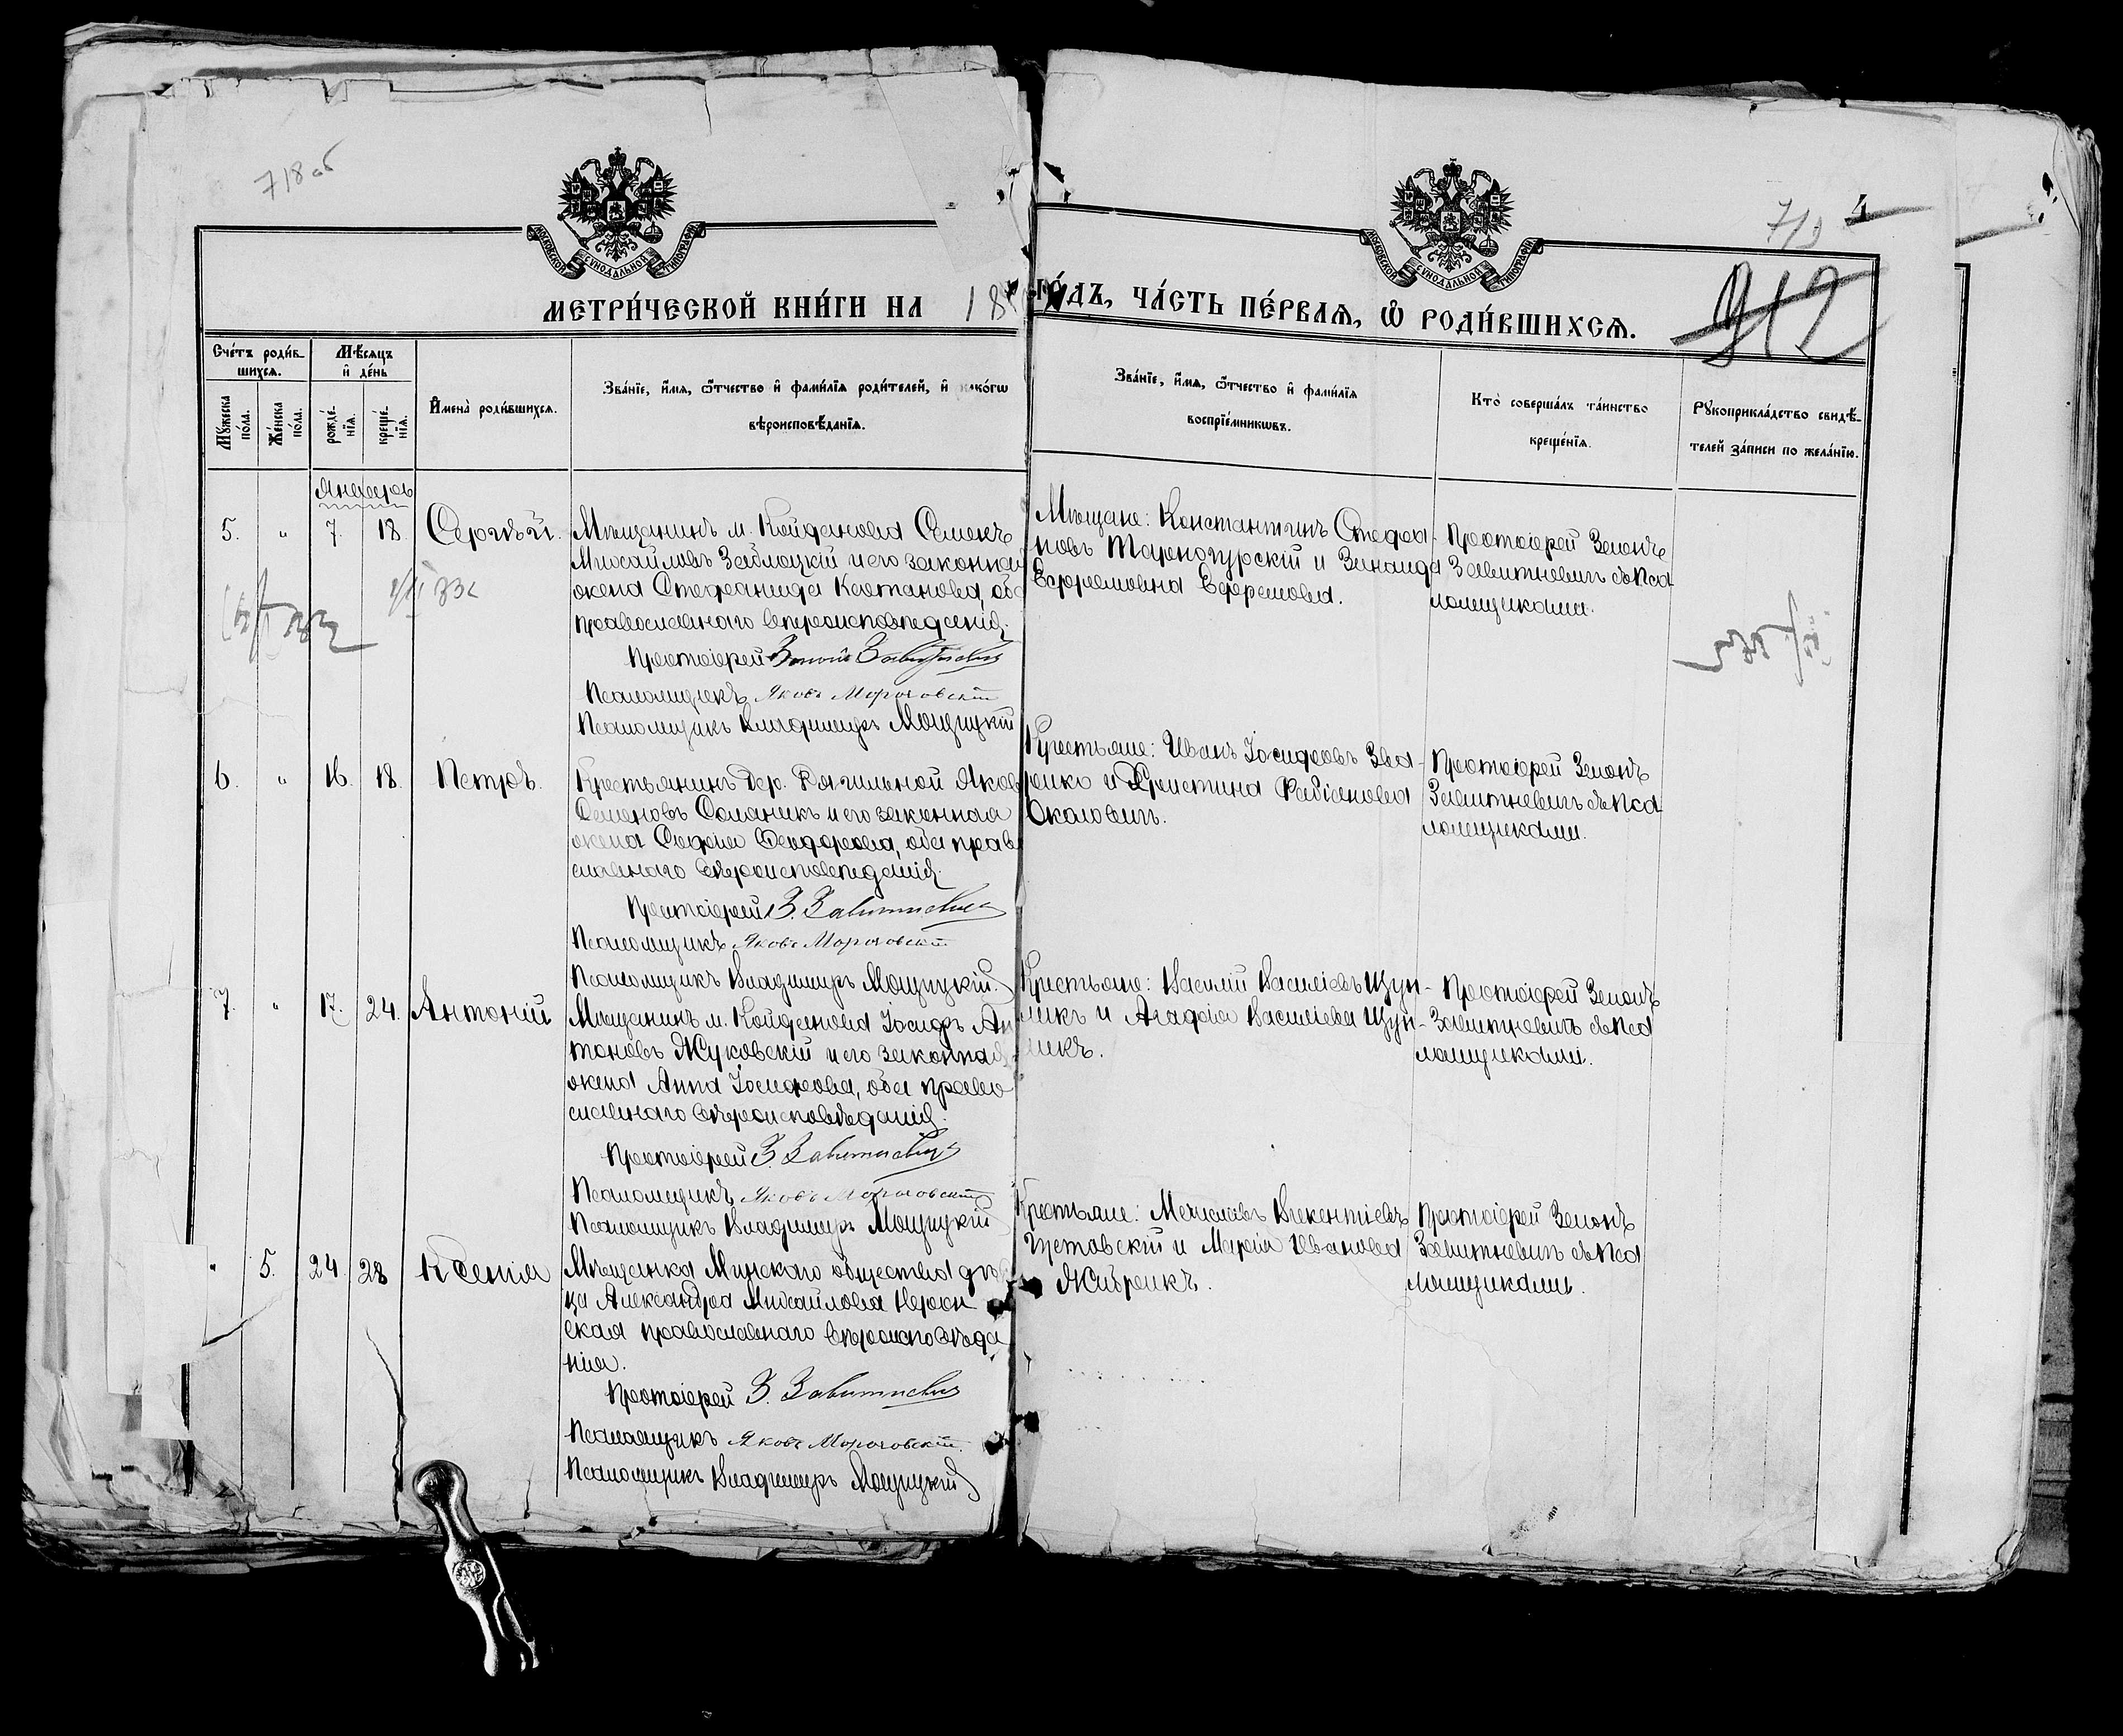 718 об
719
4
912
МОСКОВСКОЙ СѴНОДАЛЬНОЙ ТИПОГРАФІИ
МОСКОВСКОЙ СѴНОДАЛЬНОЙ ТИПОГРАФІИ
МЕТРИ́ЧЕСКОЙ КНИ́ГИ НА 18
ГО́ДЪ, ЧА́СТЬ ПЕ́РВАѦ, Ѽ РОДИ́ВШИХСѦ.
Сче́тъ роди́в-
шихсѧ.
Мѣ́сяцъ
и҆ де́нь
Мꙋ́жеска
по́ла.
Же́нска
по́ла.
рожде́-
нїѧ.
креще́-
нїѧ.
И҆мена̀ роди́вшихсѧ.
Зва́нїе, и҆́мѧ, ѻ҆́тчество и҆ фами́лїѧ роди́телей, и҆ како́гѡ
вѣроисповѣ́данїѧ.
Зва́нїе, и҆́мѧ, ѻ҆́тчество и҆ фами́лїѧ
воспрїе́мникѡвъ.
Кто̀ соверша́лъ та́инство
креще́нїѧ.
Рꙋкоприкла́дство свидѣ́-
телей за́писи по жела́нїю.
Январь
5. " 7. 18. Сергѣй.
Мѣщанинъ м. Койданова Семенъ
Михайловъ Заблоцкій и его законная
жена Стефанида Костанова, оба
православнаго вѣроисповѣданія.
Протоіерей Зенонъ Завитневичъ
Псаломщикъ Яковъ Морочовскій
Псаломщикъ Владимиръ Мощицкій
Мѣщане: Константинъ Стефа-
новъ Тарногурскій и Зинаида
Ефремовна Ефремова.
Протоіерей Зенонъ
Завитневичъ съ Пса
ломщиками.
6. " 16. 18. Петръ.
Крестьянинъ дер. Рячильной Яковъ
Семеновъ Соланикъ и его законная
жена Софія Ѳеодорова, оба право
славнаго вѣроисповѣданія.
Протоіерей З. Завитневичъ
Псаломщикъ Яковъ Морочовскій
Псаломщикъ Владимиръ Мощицкій
Крестьяне: Иванъ Іосифовъ
и Христина Фабіанова
Окаловичъ.
Протоіерей Зенонъ
Завитневичъ съ Пса
ломщиками.
7. " 17. 24. Антоній
Мѣщанинъ м. Койданова Іосифъ Ан
тоновъ Жуковскій и его законная
жена Анна Іосифова, оба право
славнаго вѣроисповѣданія.
Протоіерей З. Завитневичъ
Псаломщикъ Яковъ Морочовскій
Псаломщикъ Владимиръ Мощицкій
Крестьяне: Василій Васильевъ Щуп-
ликъ и Агафія Васильева Щуп-
ликъ.
Протоіерей Зенонъ
Завитневичъ съ Пса
ломщиками.
" 5. 24. 28 Ксенія
Мѣщанка Минскаго общества дѣви
ца Александра Михайлова
ская православнаго вѣроисповѣда
нія.
Протоіерей З. Завитневичъ
Псаломщикъ Яковъ Морочовскій
Псаломщикъ Владимиръ Мощицкій
Крестьяне: Мечиславъ Викентіевъ
и Марія Иванова
Жибрикъ.
Протоіерей Зенонъ
Завитневичъ съ Пса
ломщиками.